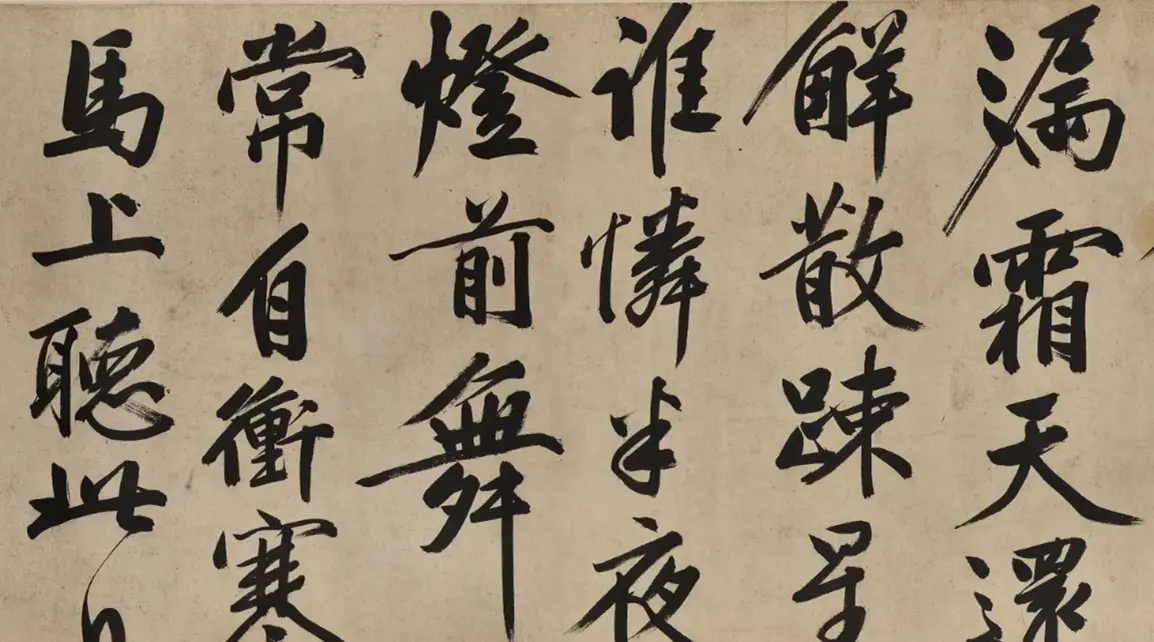 漏霜天還
解散踈星
誰憐半夜
燈前舞
常自衝寒
馬上聽此